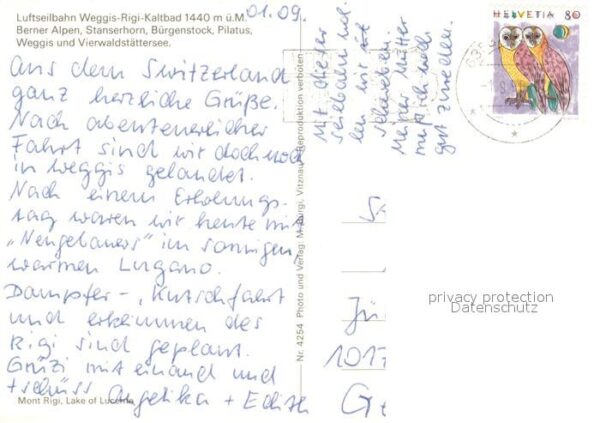 Luftseilbahn Weggis-Rigi-Kaltbad 1440 m ü.M.
Berner Alpen, Stanserhorn, Bürgenstock, Pilatus,
Weggis und Vierwaldstättersee.
01.09.
Aus dem Switzerland
ganz herzliche Grüße.
Nach abenteuerlicher
Fahrt sind wir doch noch
in Weggis gelandet.
Nach einem Erholungs-
tag waren wir heute mit
„Neugebauers" im sonnigen,
warmen Lugano.
Dampfer-, Kutschfahrt
und erklimmen des
Rigi sind geplant.
Grüzi miteinand und
tschüss Angelika + Edith
Mont Rigi, Lake of Lucerne
Nr. 4254 Photo und Verlag: M. Bürgi, Vitznau Reproduktion verboten
Mit dieser
Seilbahn wol-
len wir mit
schweben.
Meiner Mutter
muß ich noch
gut zureden.
HELVETIA 80
Jü
1017
privacy protection
Datenschutz